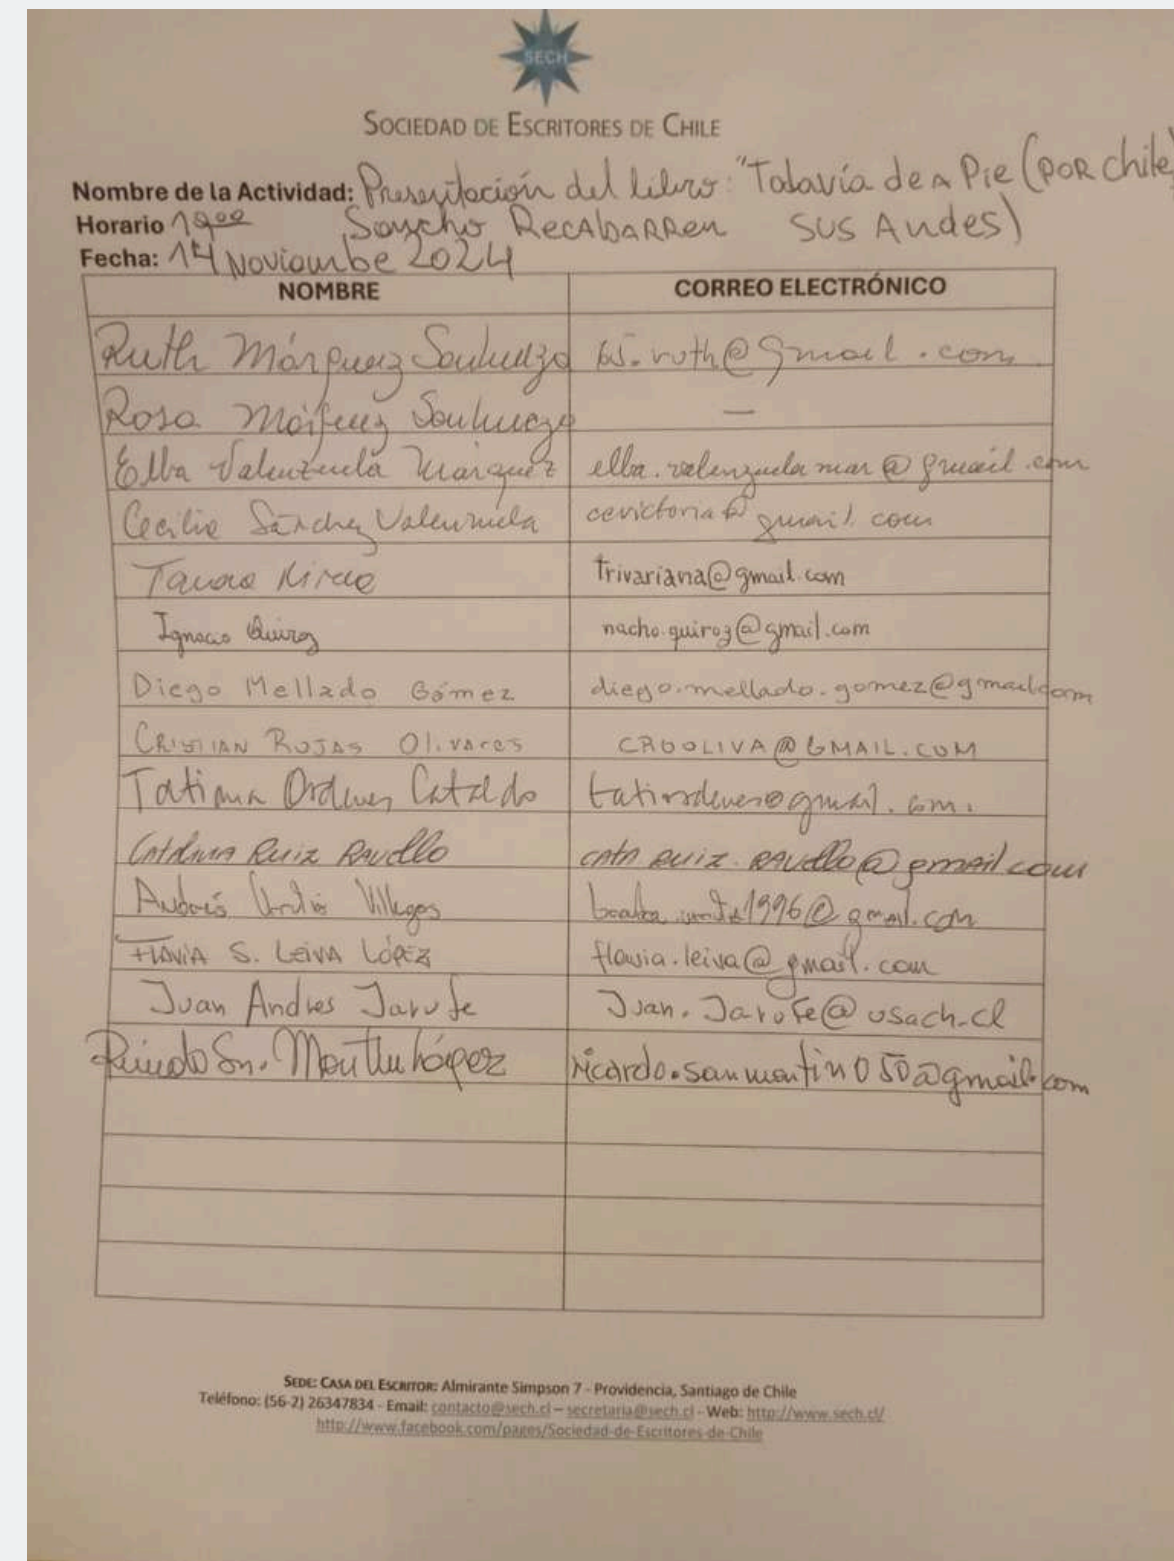 SECH
SOCIEDAD DE ESCRITORES DE CHILE
Nombre de la Actividad: Presentación del libro: "Todavía de a Pie (POR Chile
Horario 19:00 Sancho RecAbaRRen SUS Andes)
Fecha: 14 Noviembre 2024
NOMBRE CORREO ELECTRÓNICO
Ruth Márquez 65.ruth@gmail.com
Rosa Márquez —
Elba Valenzuela Márquez elba.valenzuela.mar@gmail.com
Cecilia Sánchez Valenzuela cevictoria@gmail.com
trivariana@gmail.com
Ignacio Quiroz nacho.quiroz@gmail.com
Diego Mellado Gómez diego.mellado.gomez@gmail.com
CRISTIAN ROJAS Olivares CROOLIVA@GMAIL.COM
Tatiana Ordenes Cataldo tatiordenes@gmail.com.
CATALINA RUIZ RAVELLO CATA RUIZ.RAVELLO@gmail.com
Andrés Villegas 1996@gmail.com
FLAVIA S. LEIVA LÓPEZ flavia.leiva@gmail.com
Juan Andres Jarufe Juan.Jarufe@usach.cl
Ricardo Sn. Martín López ricardo.sanmartin050@gmail.com
SEDE: CASA DEL ESCRITOR: Almirante Simpson 7 - Providencia, Santiago de Chile
Teléfono: (56-2) 26347834 - Email: contacto@sech.cl – secretaria@sech.cl - Web: http://www.sech.cl/
http://www.facebook.com/pages/Sociedad-de-Escritores-de-Chile